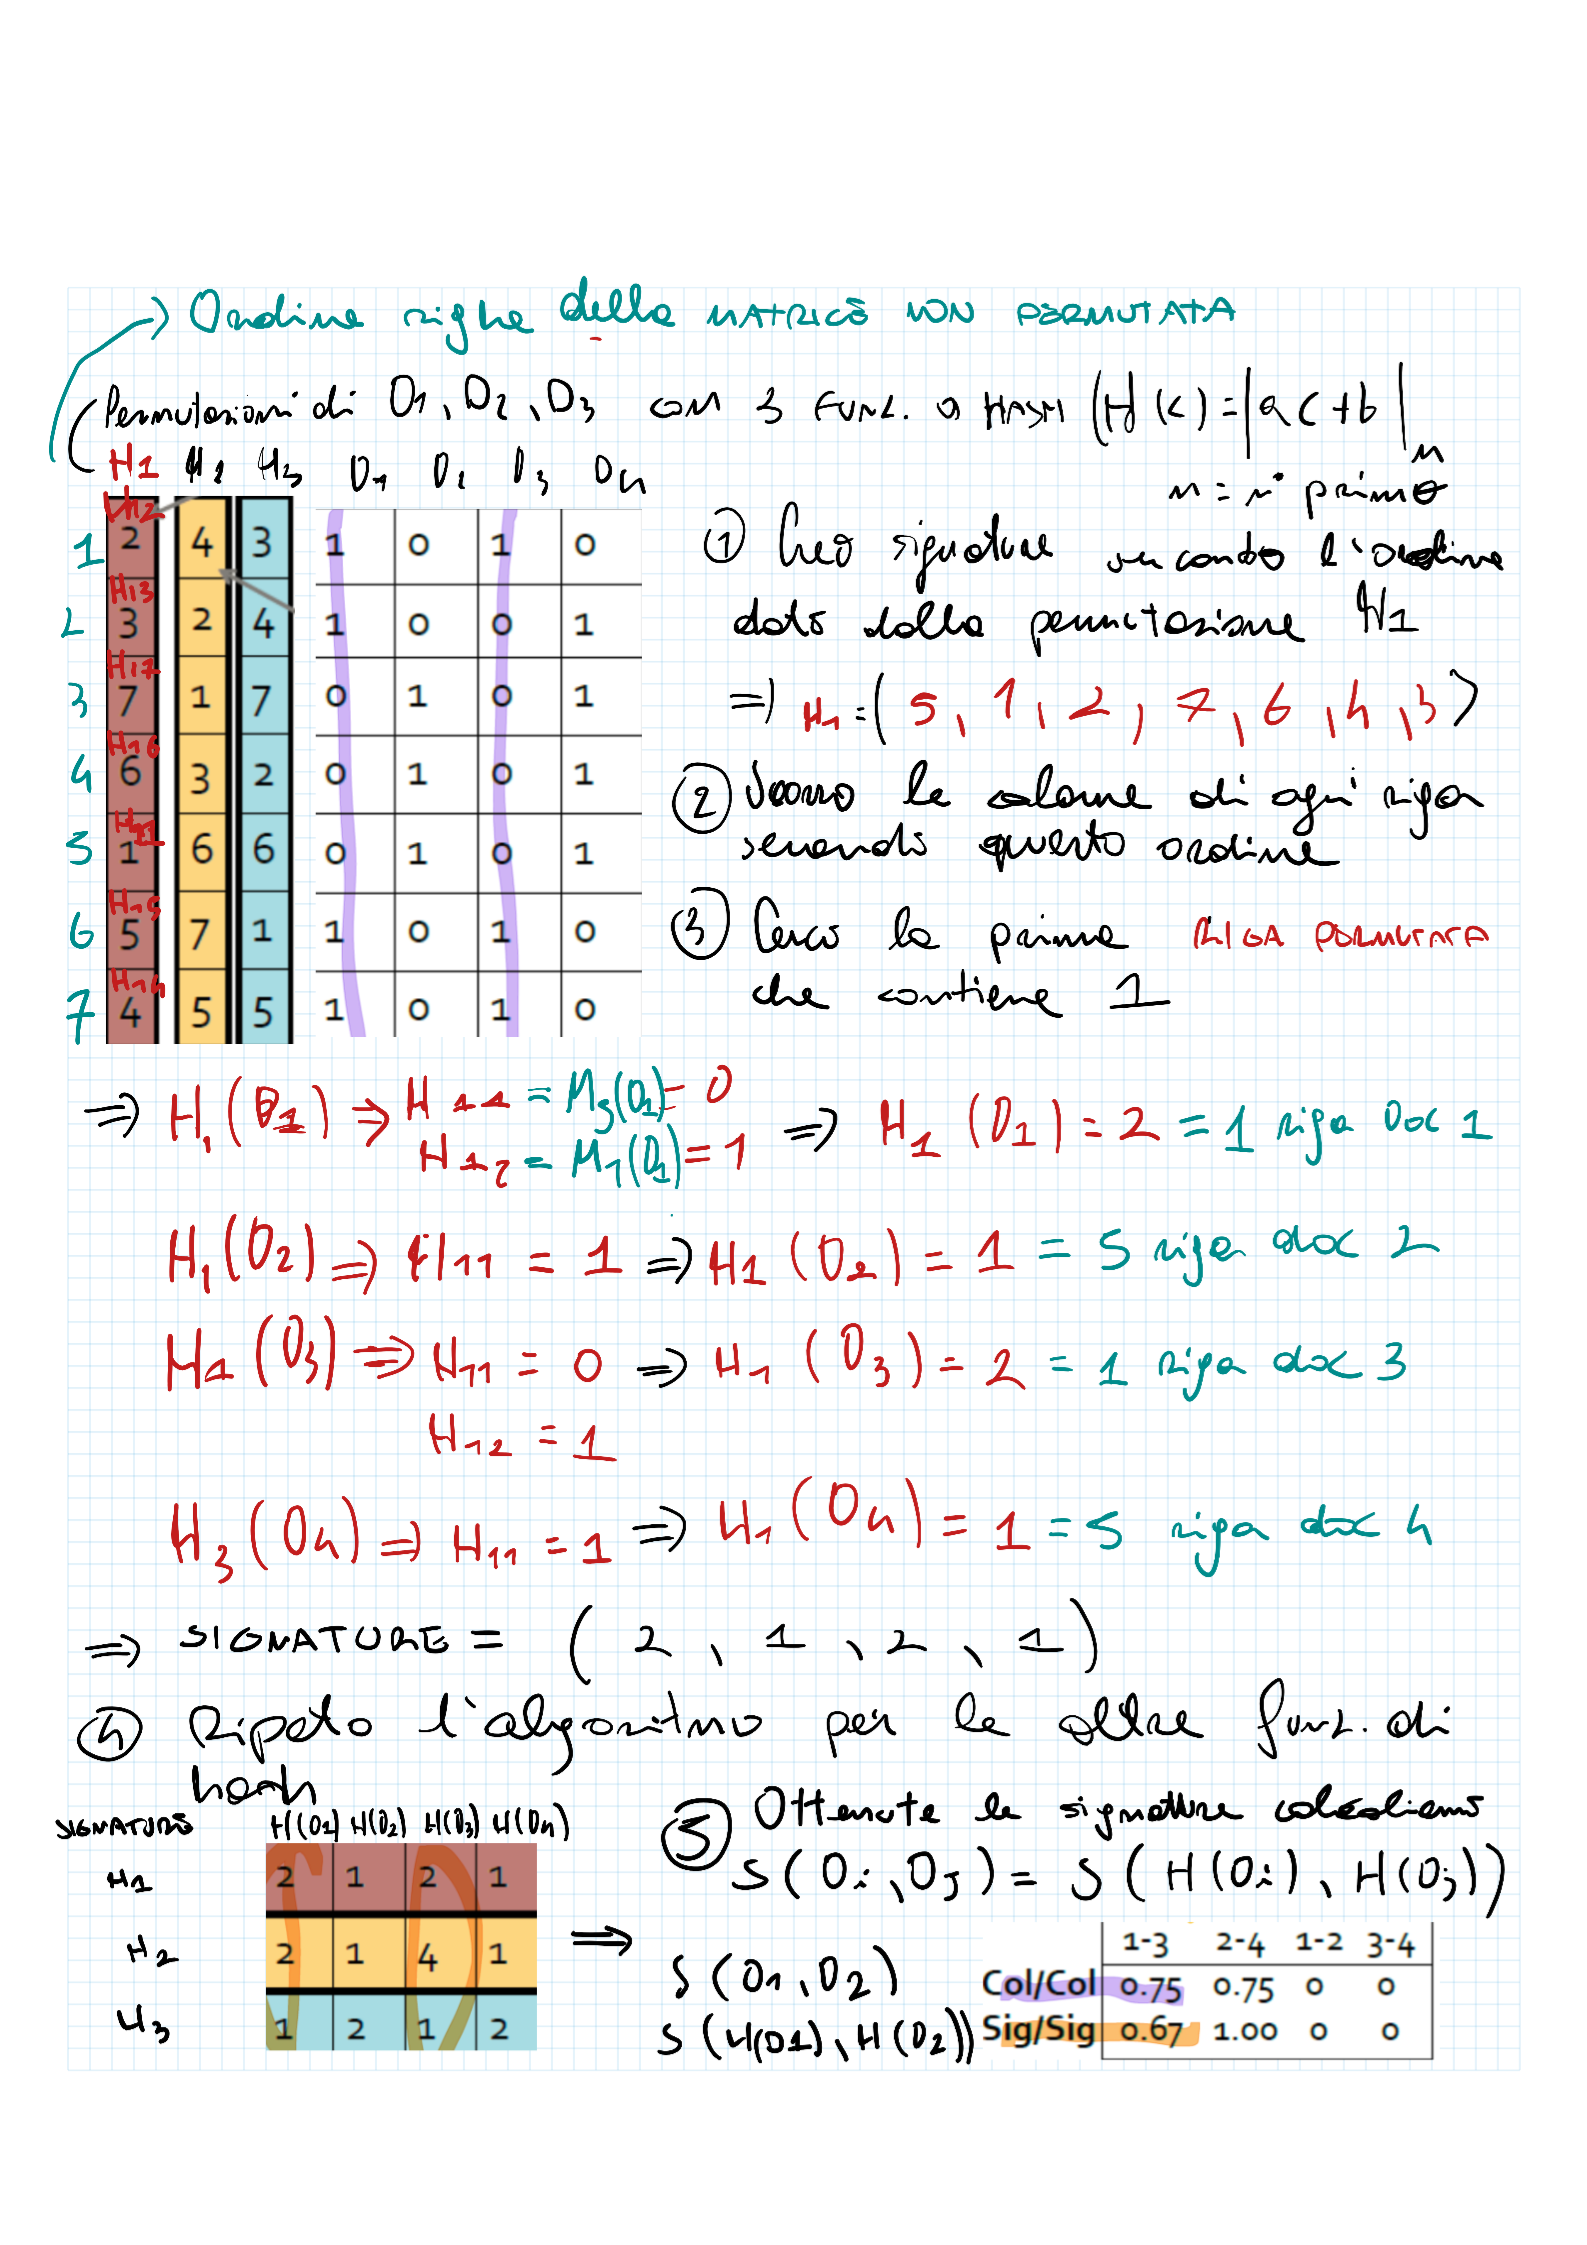 → Ordine righe della MATRICE NON PERMUTATA
Permutazioni di D1, D2, D3 con 3 FUNZ. DI HASH (H(c) = |ac+b|n
n = n° primo
H1 H2 H3 D1 D2 D3 D4
H12
1 2 4 3 1 0 1 0
H13
2 3 2 4 1 0 0 1
H17
3 7 1 7 0 1 0 1
H16
4 6 3 2 0 1 0 1
H11
5 1 6 6 0 1 0 1
H15
6 5 7 1 1 0 1 0
H14
7 4 5 5 1 0 1 0
① Creo signature seguendo l'ordine
dato dalla permutazione H1
=> H1 = (5, 1, 2, 7, 6, 4, 3)
② Scorro le colonne di ogni riga
seguendo questo ordine
③ Cerco la prima RIGA PERMUTATA
che contiene 1
=> H1(D1) => H11 = M5(D1) = 0
H12 = M1(D1) = 1 => H1(D1) = 2 = 1 riga Doc 1
H1(D2) => H11 = 1 => H1(D2) = 1 = 5 riga doc 2
H1(D3) => H11 = 0 => H1(D3) = 2 = 1 riga doc 3
H12 = 1
H3(D4) => H11 = 1 => H1(D4) = 1 = 5 riga doc 4
=> SIGNATURE = (2, 1, 2, 1)
④ Ripeto l'algoritmo per le altre funz. di
hash
SIGNATURE H(D1) H(D2) H(D3) H(D4)
H1 2 1 2 1
H2 2 1 4 1
H3 1 2 1 2
=>
⑤ Ottenute le signature calcoliamo
S(Di, Dj) = S(H(Di), H(Dj))
1-3 2-4 1-2 3-4
S(D1, D2) Col/Col 0.75 0.75 0 0
S(H(D1), H(D2)) Sig/Sig 0.67 1.00 0 0